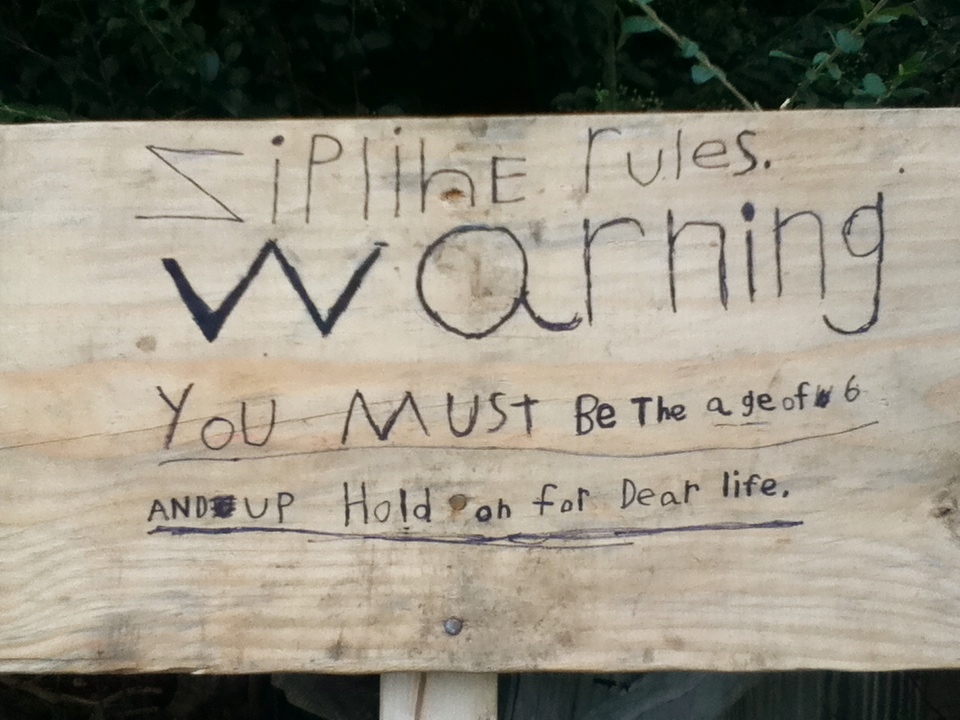 ZiPlinE rules.
Warning
YoU MUST Be The age of 6
AND UP Hold on for Dear life.